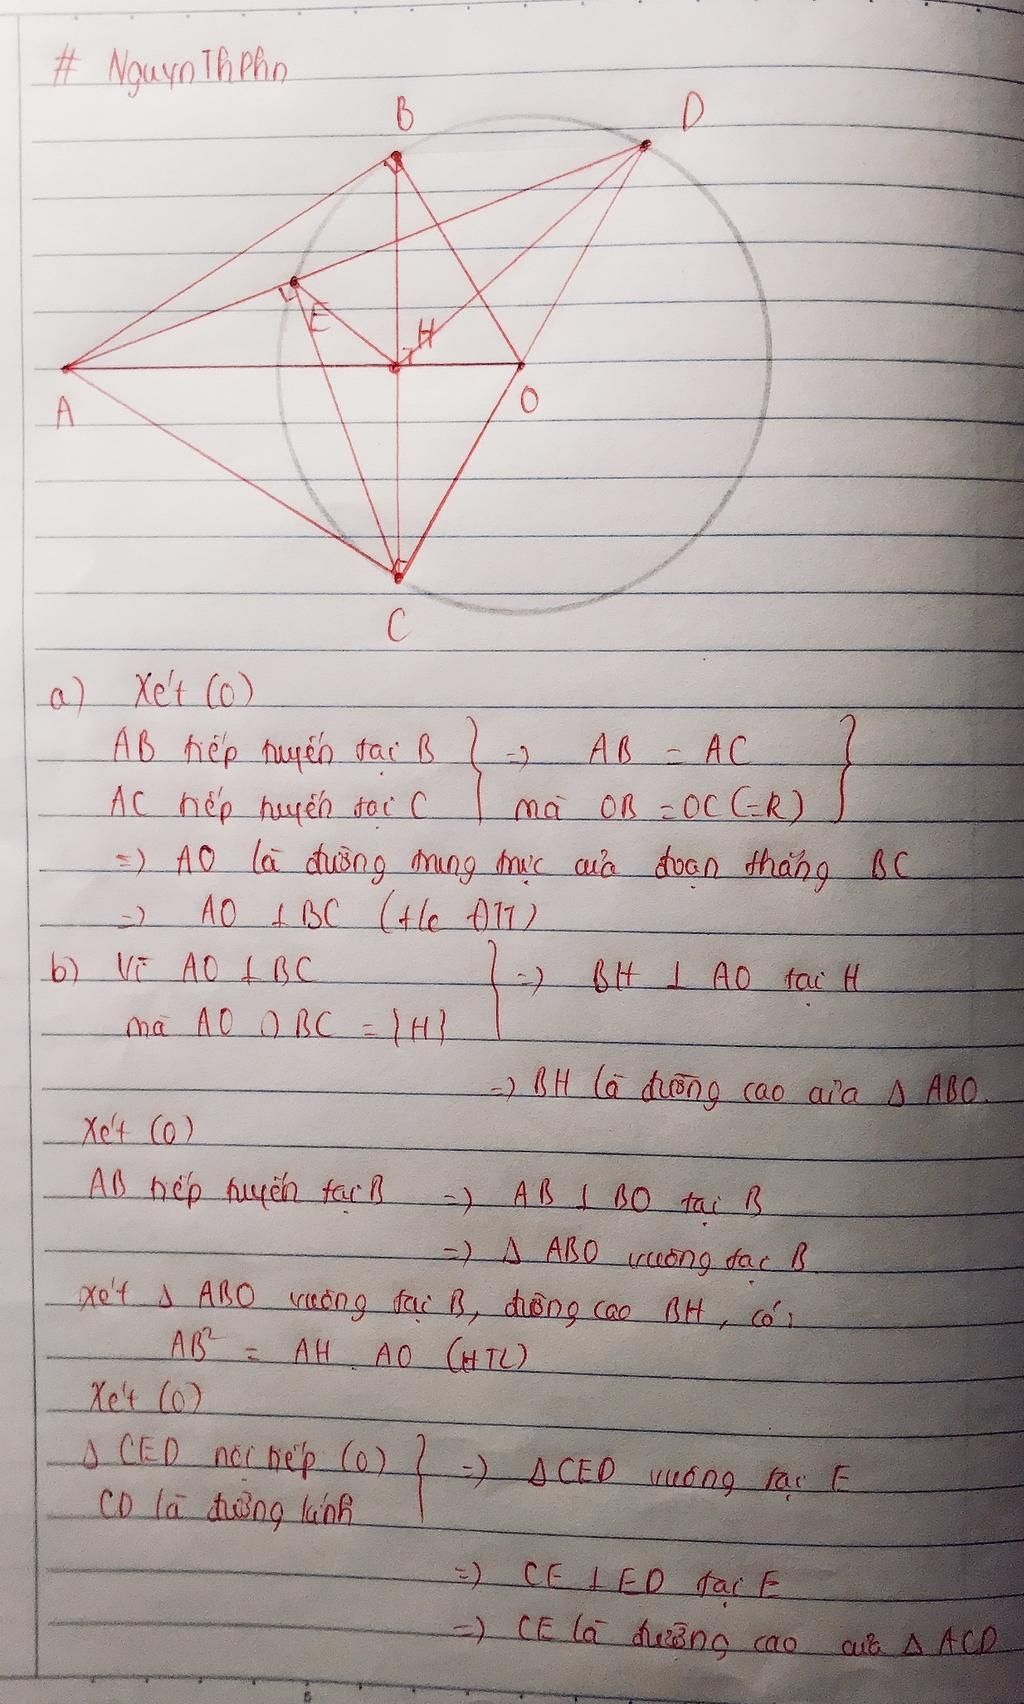 # NguynThPhn
B
D
E
H
A
O
C
a) Xét (O)
AB tiếp tuyến tại B } => AB = AC }
AC tiếp tuyến tại C } mà OB = OC (=R) }
=> AO là đường trung trực của đoạn thẳng BC
=> AO ⊥ BC (t/c ĐTT)
b) Vì AO ⊥ BC } => BH ⊥ AO tại H
mà AO ∩ BC = {H}
=> BH là đường cao của Δ ABO.
Xét (O)
AB tiếp tuyến tại B => AB ⊥ BO tại B
=> Δ ABO vuông tại B
Xét Δ ABO vuông tại B, đường cao BH, có:
AB² = AH . AO (HTL)
Xét (O)
Δ CED nội tiếp (O) } => Δ CED vuông tại E
CD là đường kính
=> CE ⊥ ED tại E
=> CE là đường cao của Δ ACD